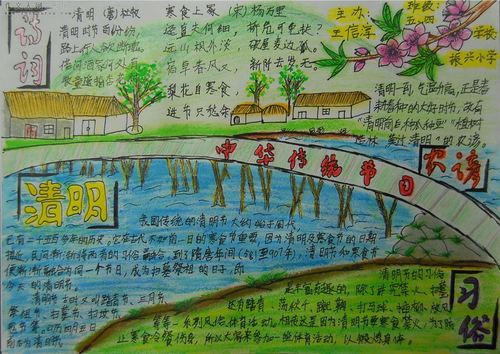 诗词
清明(唐)杜牧
清明时节雨纷纷
路上行人欲断魂
借问酒家何处有
牧童遥指杏花
寒食上冢(宋)杨万里
迳直夫何细,桥危可免扶?
远山枫外淡,破屋麦边孤。
宿草春风又,新阡去岁无。
梨花自寒食,
进节只愁余
主办:
王信淳
班级:
五、四
学校
振兴小学
清明一到,气温升高,正是春
耕春种的大好时节,故有
"清明前后种瓜种豆""植树
造林,莫过清明"的农谚。
农谚
中华传统节日
清明
我国传统的清明节大约始于周代
已有二千五百多年的历史。
接近,民间渐渐将两者的习俗融合,到了隋唐年间(581至907年),清明节和寒食节
便渐渐融合为同一个节日,成为扫墓祭祖的日子,即
今天的清明节。
清明节古时又叫踏青节、三月节、
祭祖节、扫墓节、扫坟节、
习俗
清明节的习俗
是丰富有趣的,除了讲究禁火、扫墓,
还有踏青、荡秋千、蹴鞠、打马球、插柳
等一系列风俗体育活动。相传这是因为清明节要寒食禁火,为了防
止寒食冷餐伤身,所以大家来参加一些体育活动,以锻炼身体。